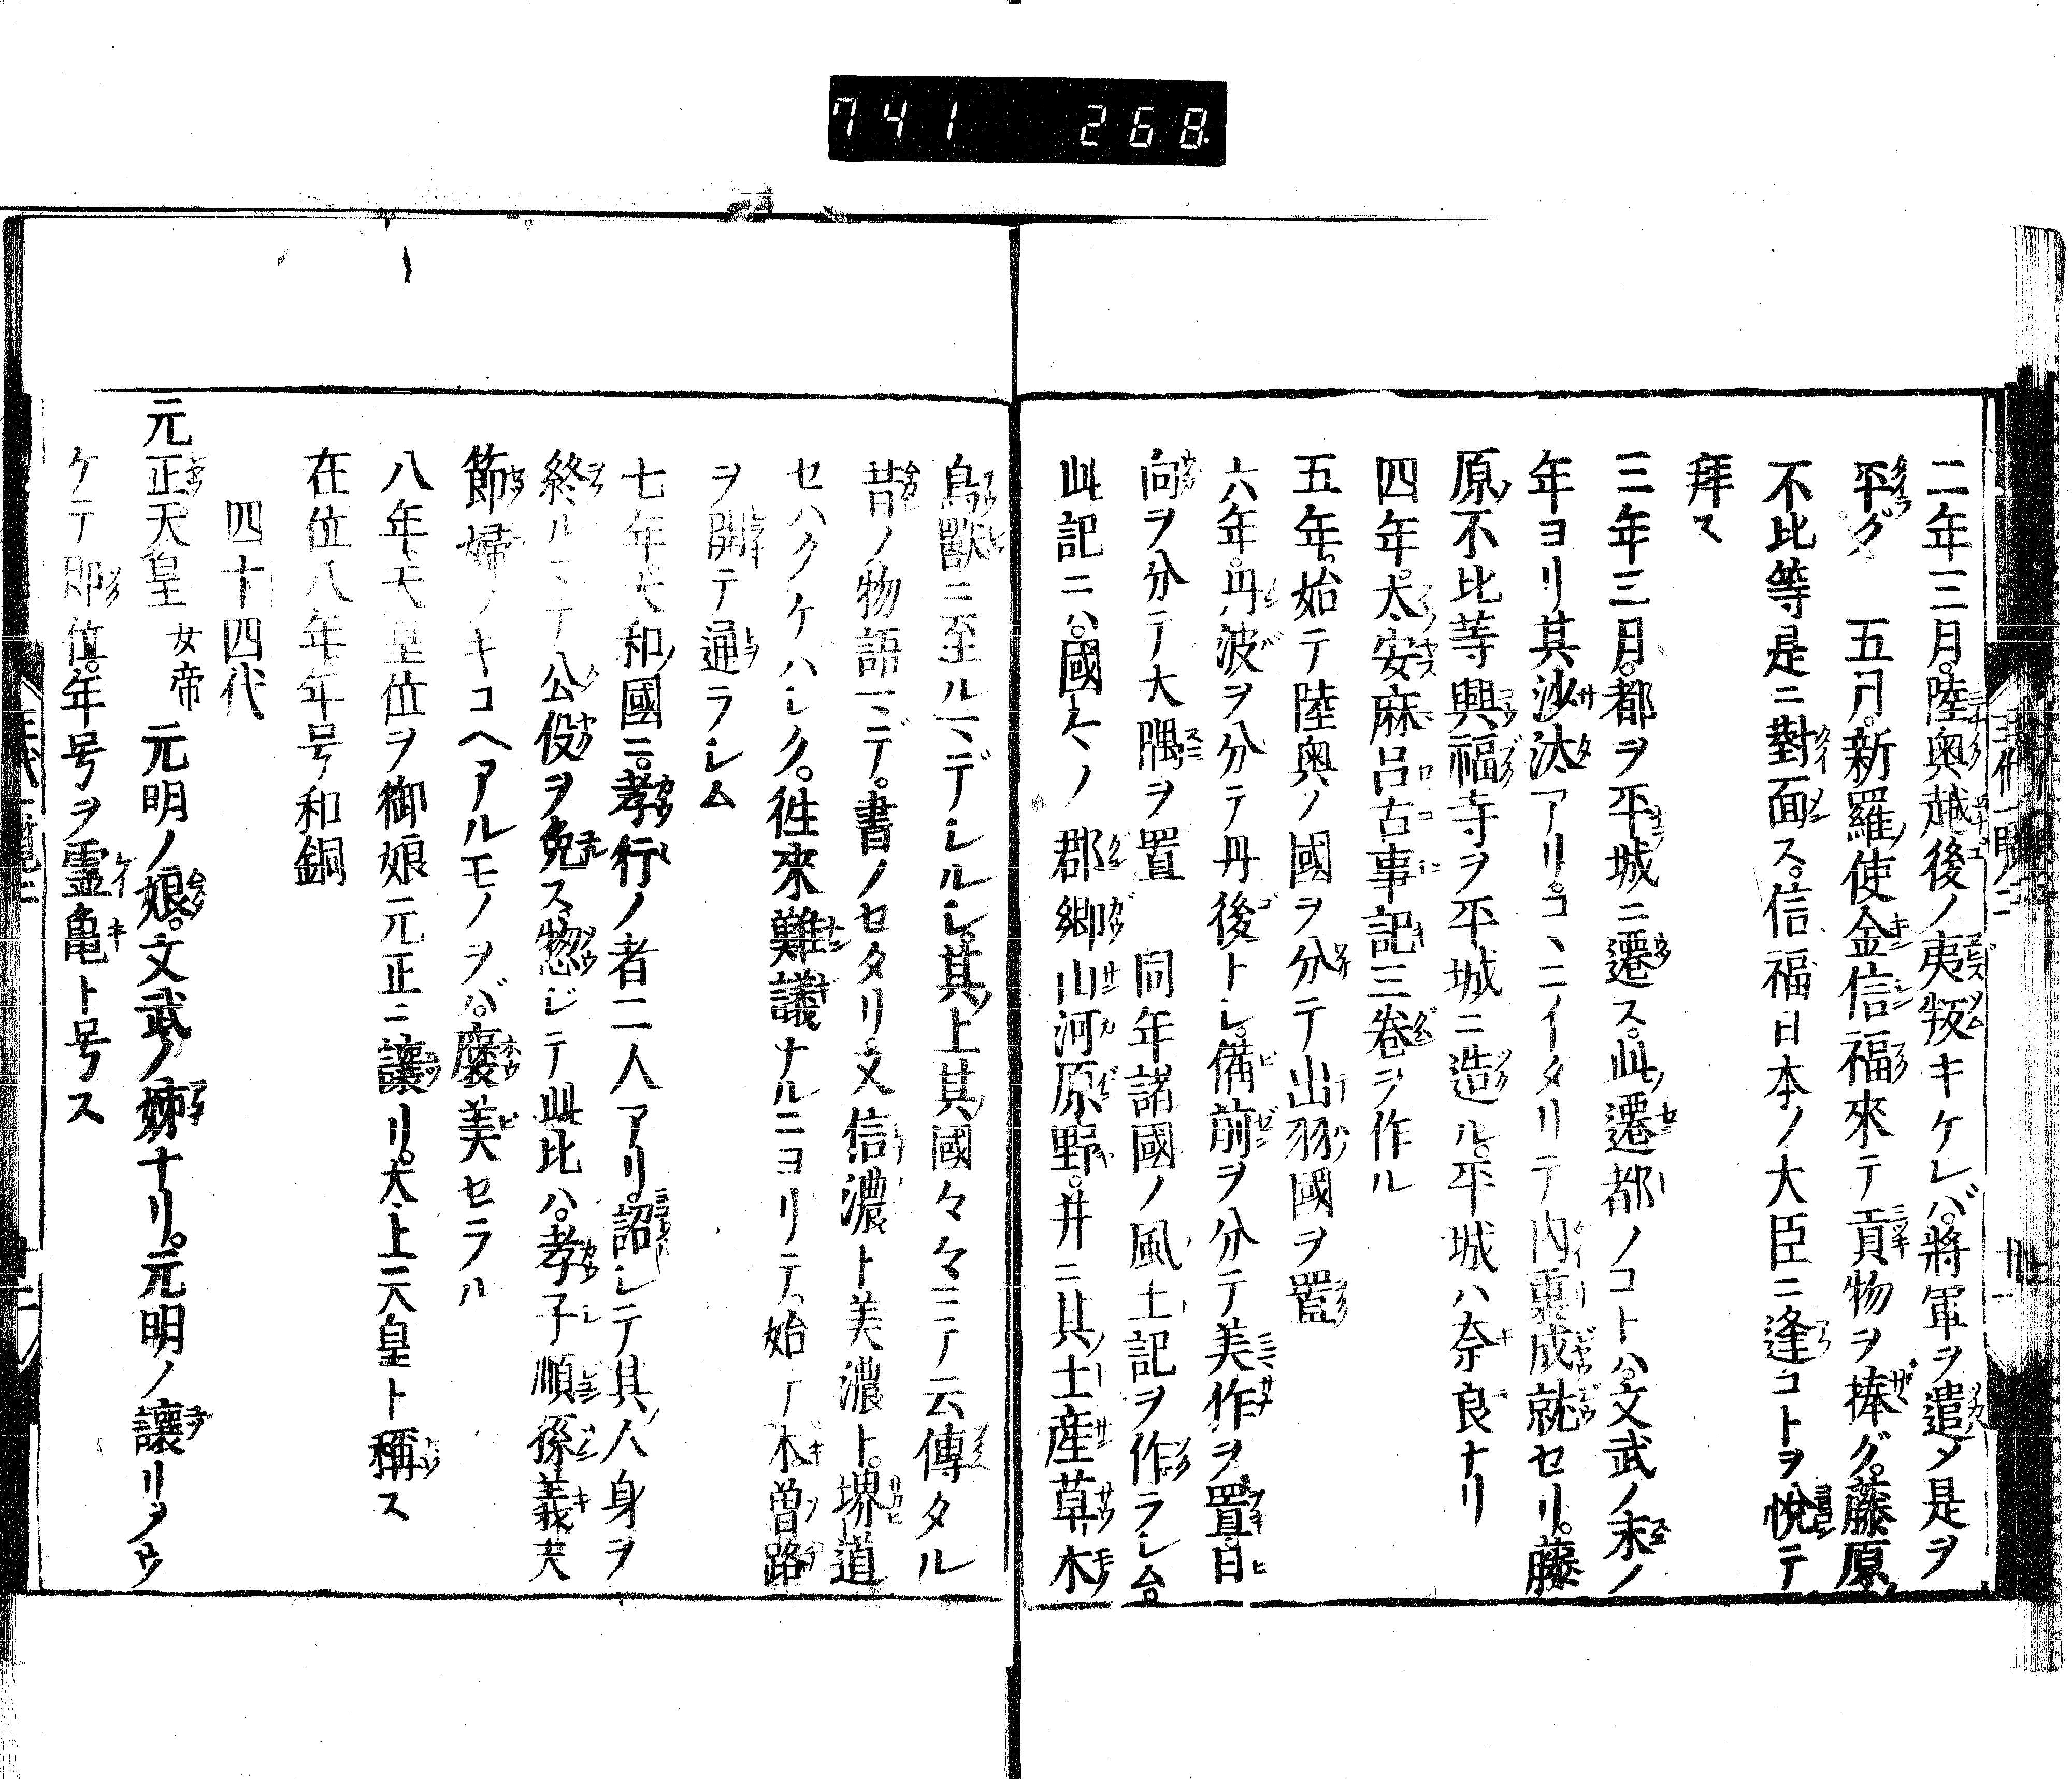 741 268
二年三月。陸奥越後ノ夷叛キケレバ。將軍ヲ遣メ是ヲ
平グ 五月。新羅使金信福來テ貢物ヲ捧グ。藤原
不比等是ニ對面ス。信福日本ノ大臣ニ逢コトヲ悅テ
拜ス
三年三月。都ヲ平城ニ遷ス。此遷都ノコトハ。文武ノ末ノ
年ヨリ其沙汰アリ。コヽニイタリテ内裏成就セリ。藤
原不比等興福寺ヲ平城ニ造ル。平城ハ奈良ナリ
四年。太安麻呂古事記三卷ヲ作ル
五年。始テ陸奥ノ國ヲ分テ出羽國ヲ置
六年。丹波ヲ分テ丹後トシ。備前ヲ分テ美作ヲ置。日
向ヲ分テ大隅ヲ置 同年諸國ノ風土記ヲ作ラシム。
此記ニハ。國々ノ郡郷山河原野。幷ニ其土産草木
鳥獸ニ至ルマデシルシ。其上其國々々ニテ云傳タル
昔ノ物語マデ。書ノセタリ。又信濃ト美濃ト。堺道
セハクケハシク。徃來難議ナルニヨリテ。始テ木曾路
ヲ開テ通ラシム
七年。大和國ニ。孝行ノ者二人アリ。詔シテ其人身ヲ
終ルマテ公役ヲ免ス。惣ジテ此比ハ。孝子順孫義夫
節婦ノキコヘアルモノヲバ。褒美セラル
八年。天皇位ヲ御娘元正ニ讓リ。太上天皇ト稱ス
在位八年年号ノ和銅
四十四代
元正天皇 女帝 元明ノ娘。文武ノ姉ナリ。元明ノ讓リヲウ
ケテ即位。年号ヲ霊亀ト号ス